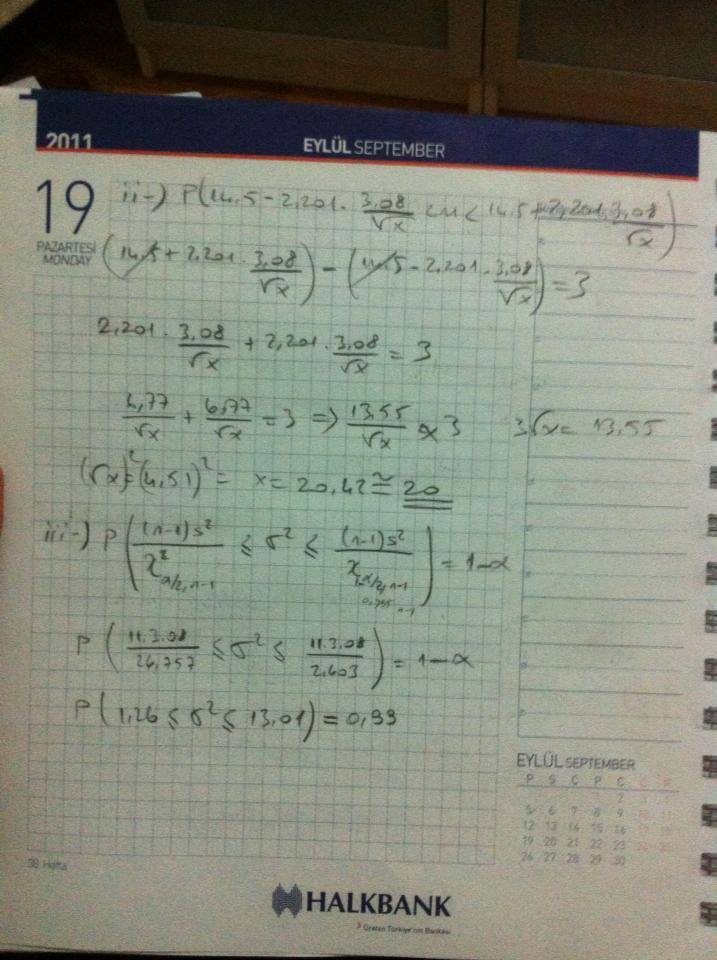 2011
EYLÜL SEPTEMBER
19
PAZARTESİ
MONDAY
ii-) P(14,5 - 2,201 . 3,08/√x < μ < 14,5 + 2,201 . 3,08/√x)
(14,5 + 2,201 . 3,08/√x) - (14,5 - 2,201 . 3,08/√x) = 3
2,201 . 3,08/√x + 2,201 . 3,08/√x = 3
6,77/√x + 6,77/√x = 3 ⇒ 13,55/√x = 3    3√x = 13,55
(√x)² = (4,51)² = x = 20,42 ≅ 20
iii-) P((n-1)s²/χ²α/2, n-1 ≤ σ² ≤ (n-1)s²/χ1-α/2, n-1) = 1-α
0,995 n-1
P(11.3.08/26,757 ≤ σ² ≤ 11.3.08/2,603) = 1-α
P(1,26 ≤ σ² ≤ 13,01) = 0,99
EYLÜL SEPTEMBER
P S Ç P C C P
2 3 4
5 6 7 8 9 10 11
12 13 14 15 16 17 18
19 20 21 22 23 24 25
26 27 28 29 30
38 Hafta
HALKBANK
Üreten Türkiye'nin Bankası